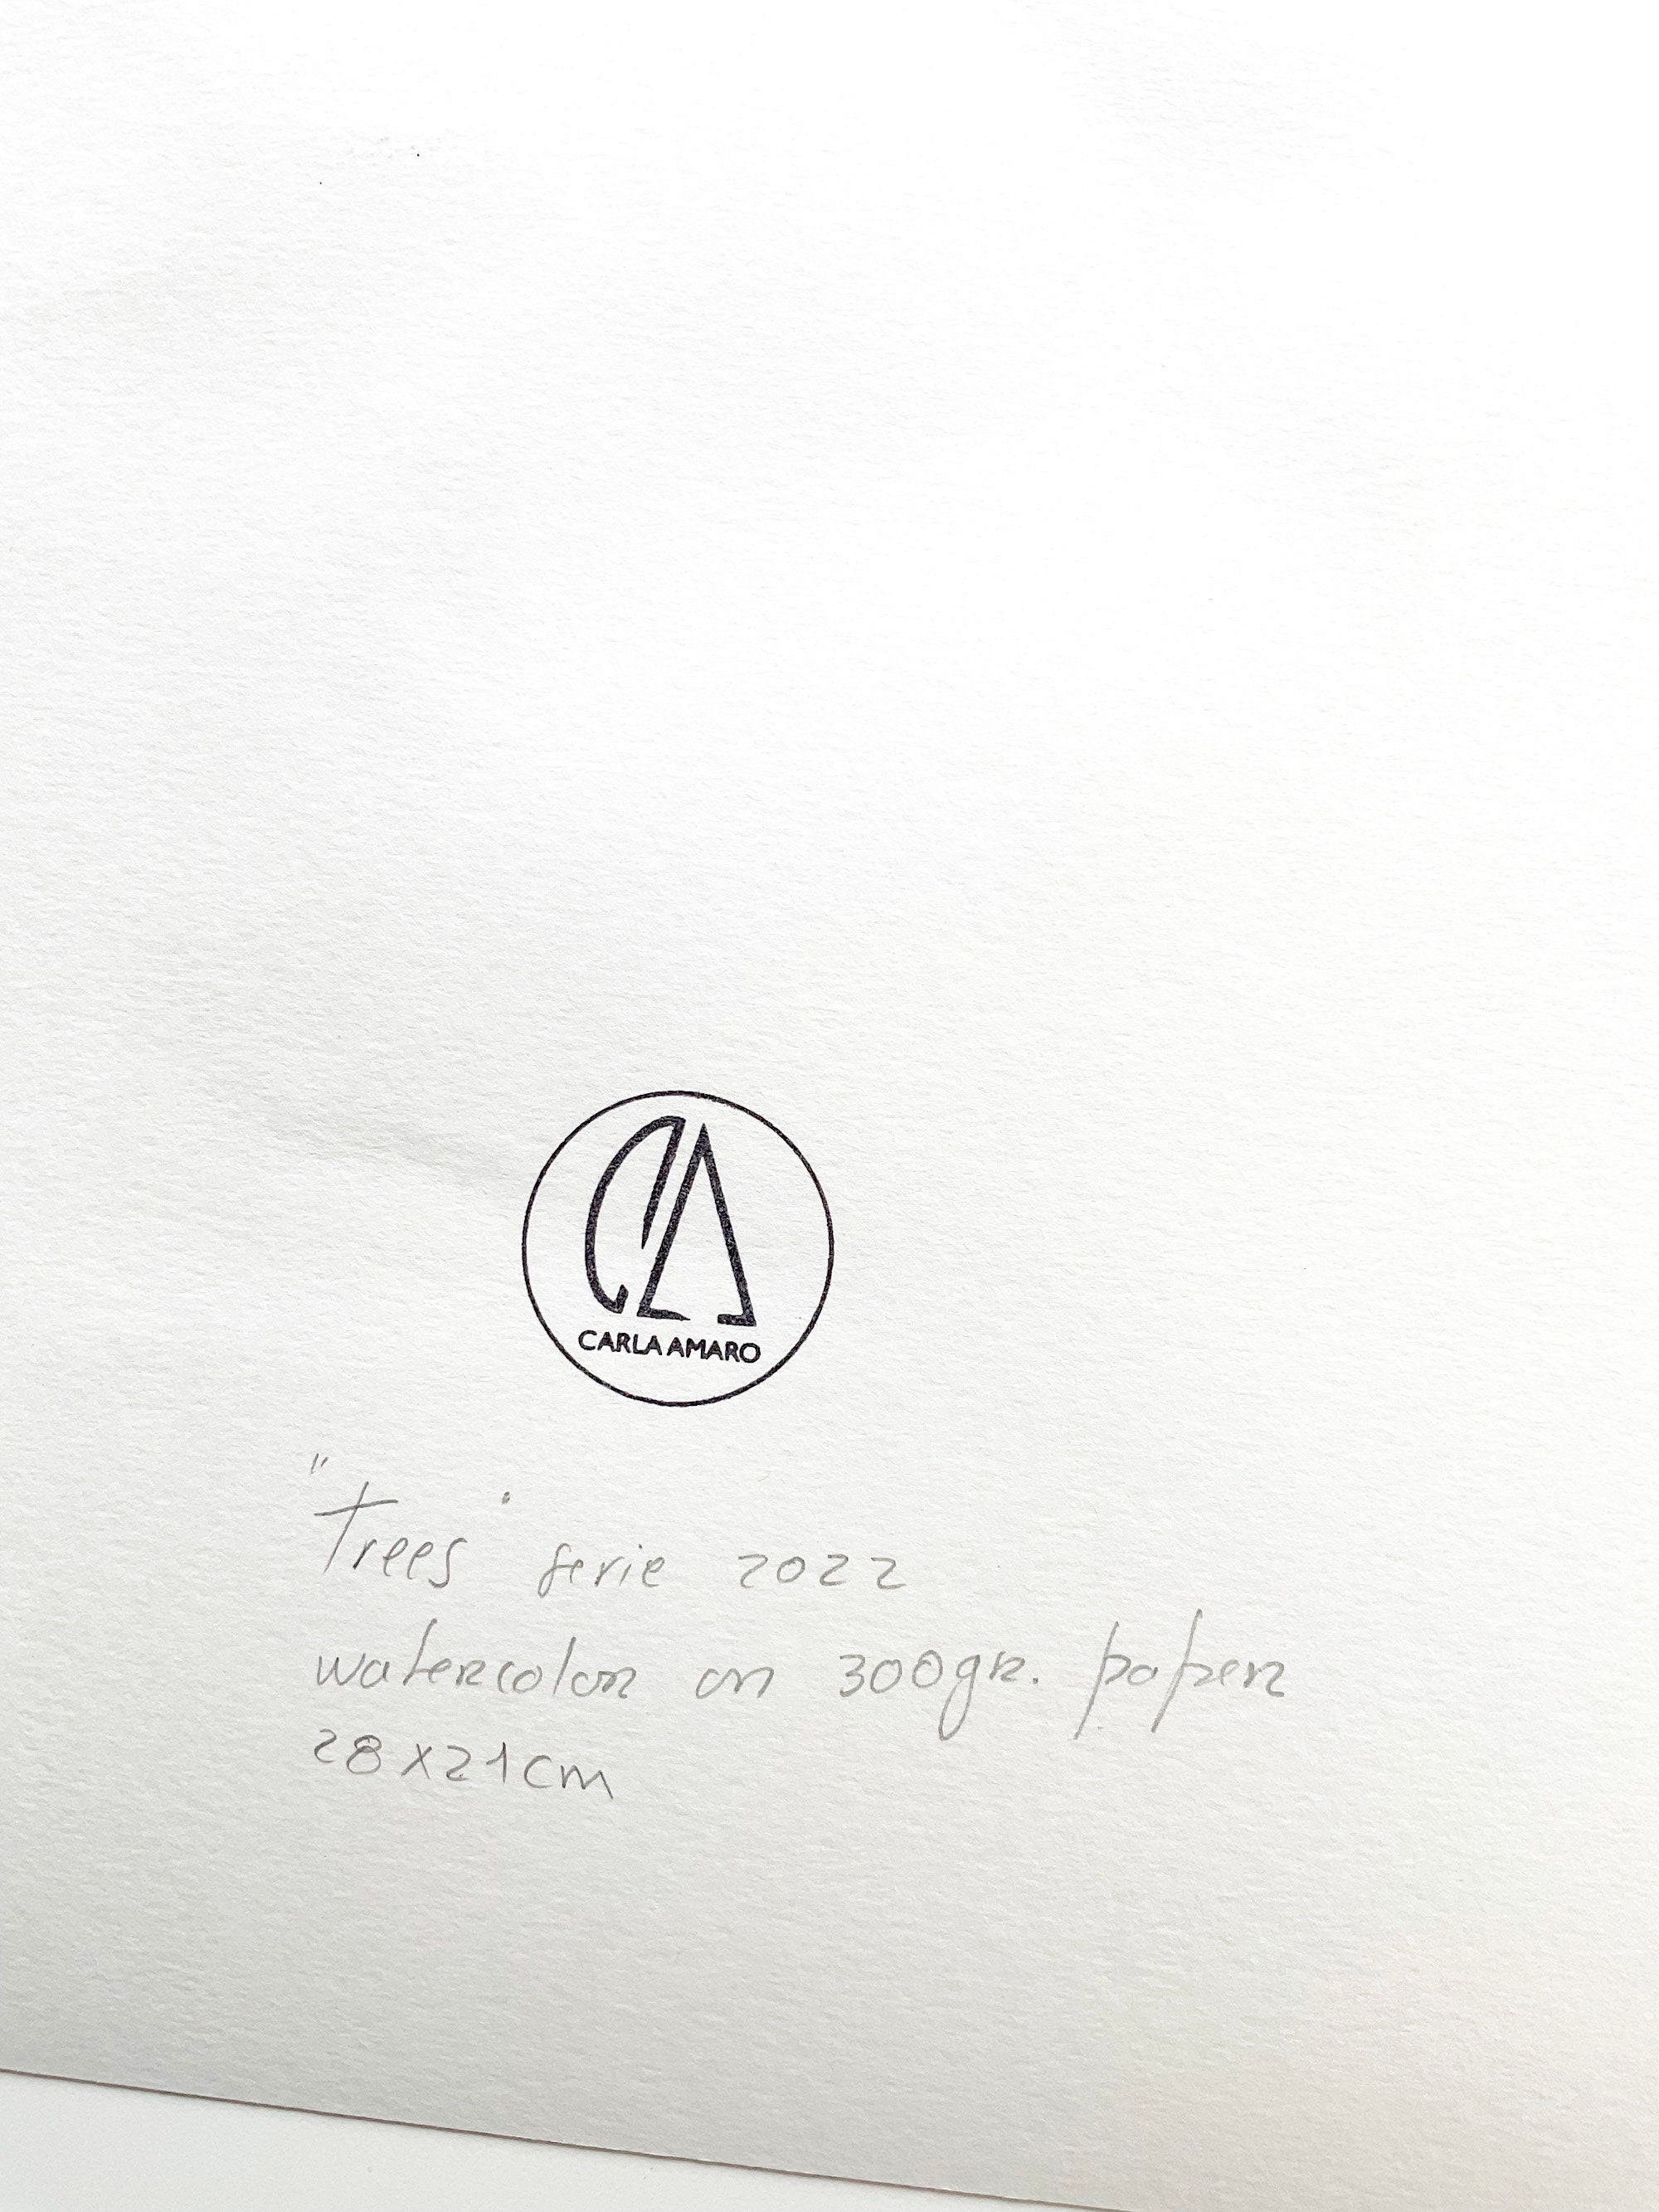 CA
CARLA AMARO
"Trees" serie 2022
watercolor on 300gr. paper
28x21cm